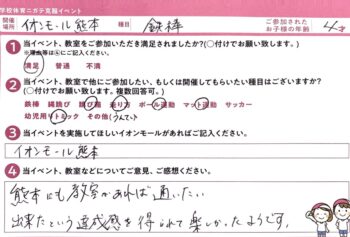 学校体育ニガテ克服イベント
開催場所 イオンモール熊本 種目 鉄棒 ご参加されたお子様の年齢 4才
1 当イベント、教室をご参加いただき満足されましたか?(○付けてお願い致します。)
満足 普通 不満
2 当イベント、教室で他にご参加したい、もしくは開催してもらいたい種目はございますか?
(○付けてお願い致します。複数回答可。)
鉄棒 縄跳び 跳び箱 走り方 ボール運動 マット運動 サッカー
幼児用リトミック その他(うんてい)
3 当イベントを実施してほしいイオンモールがあればご記入ください。
イオンモール熊本
4 当イベント、教室などについてご意見、ご感想ください。
熊本にも教室があれば通いたい
出来たという達成感を得られて楽しかったようです。